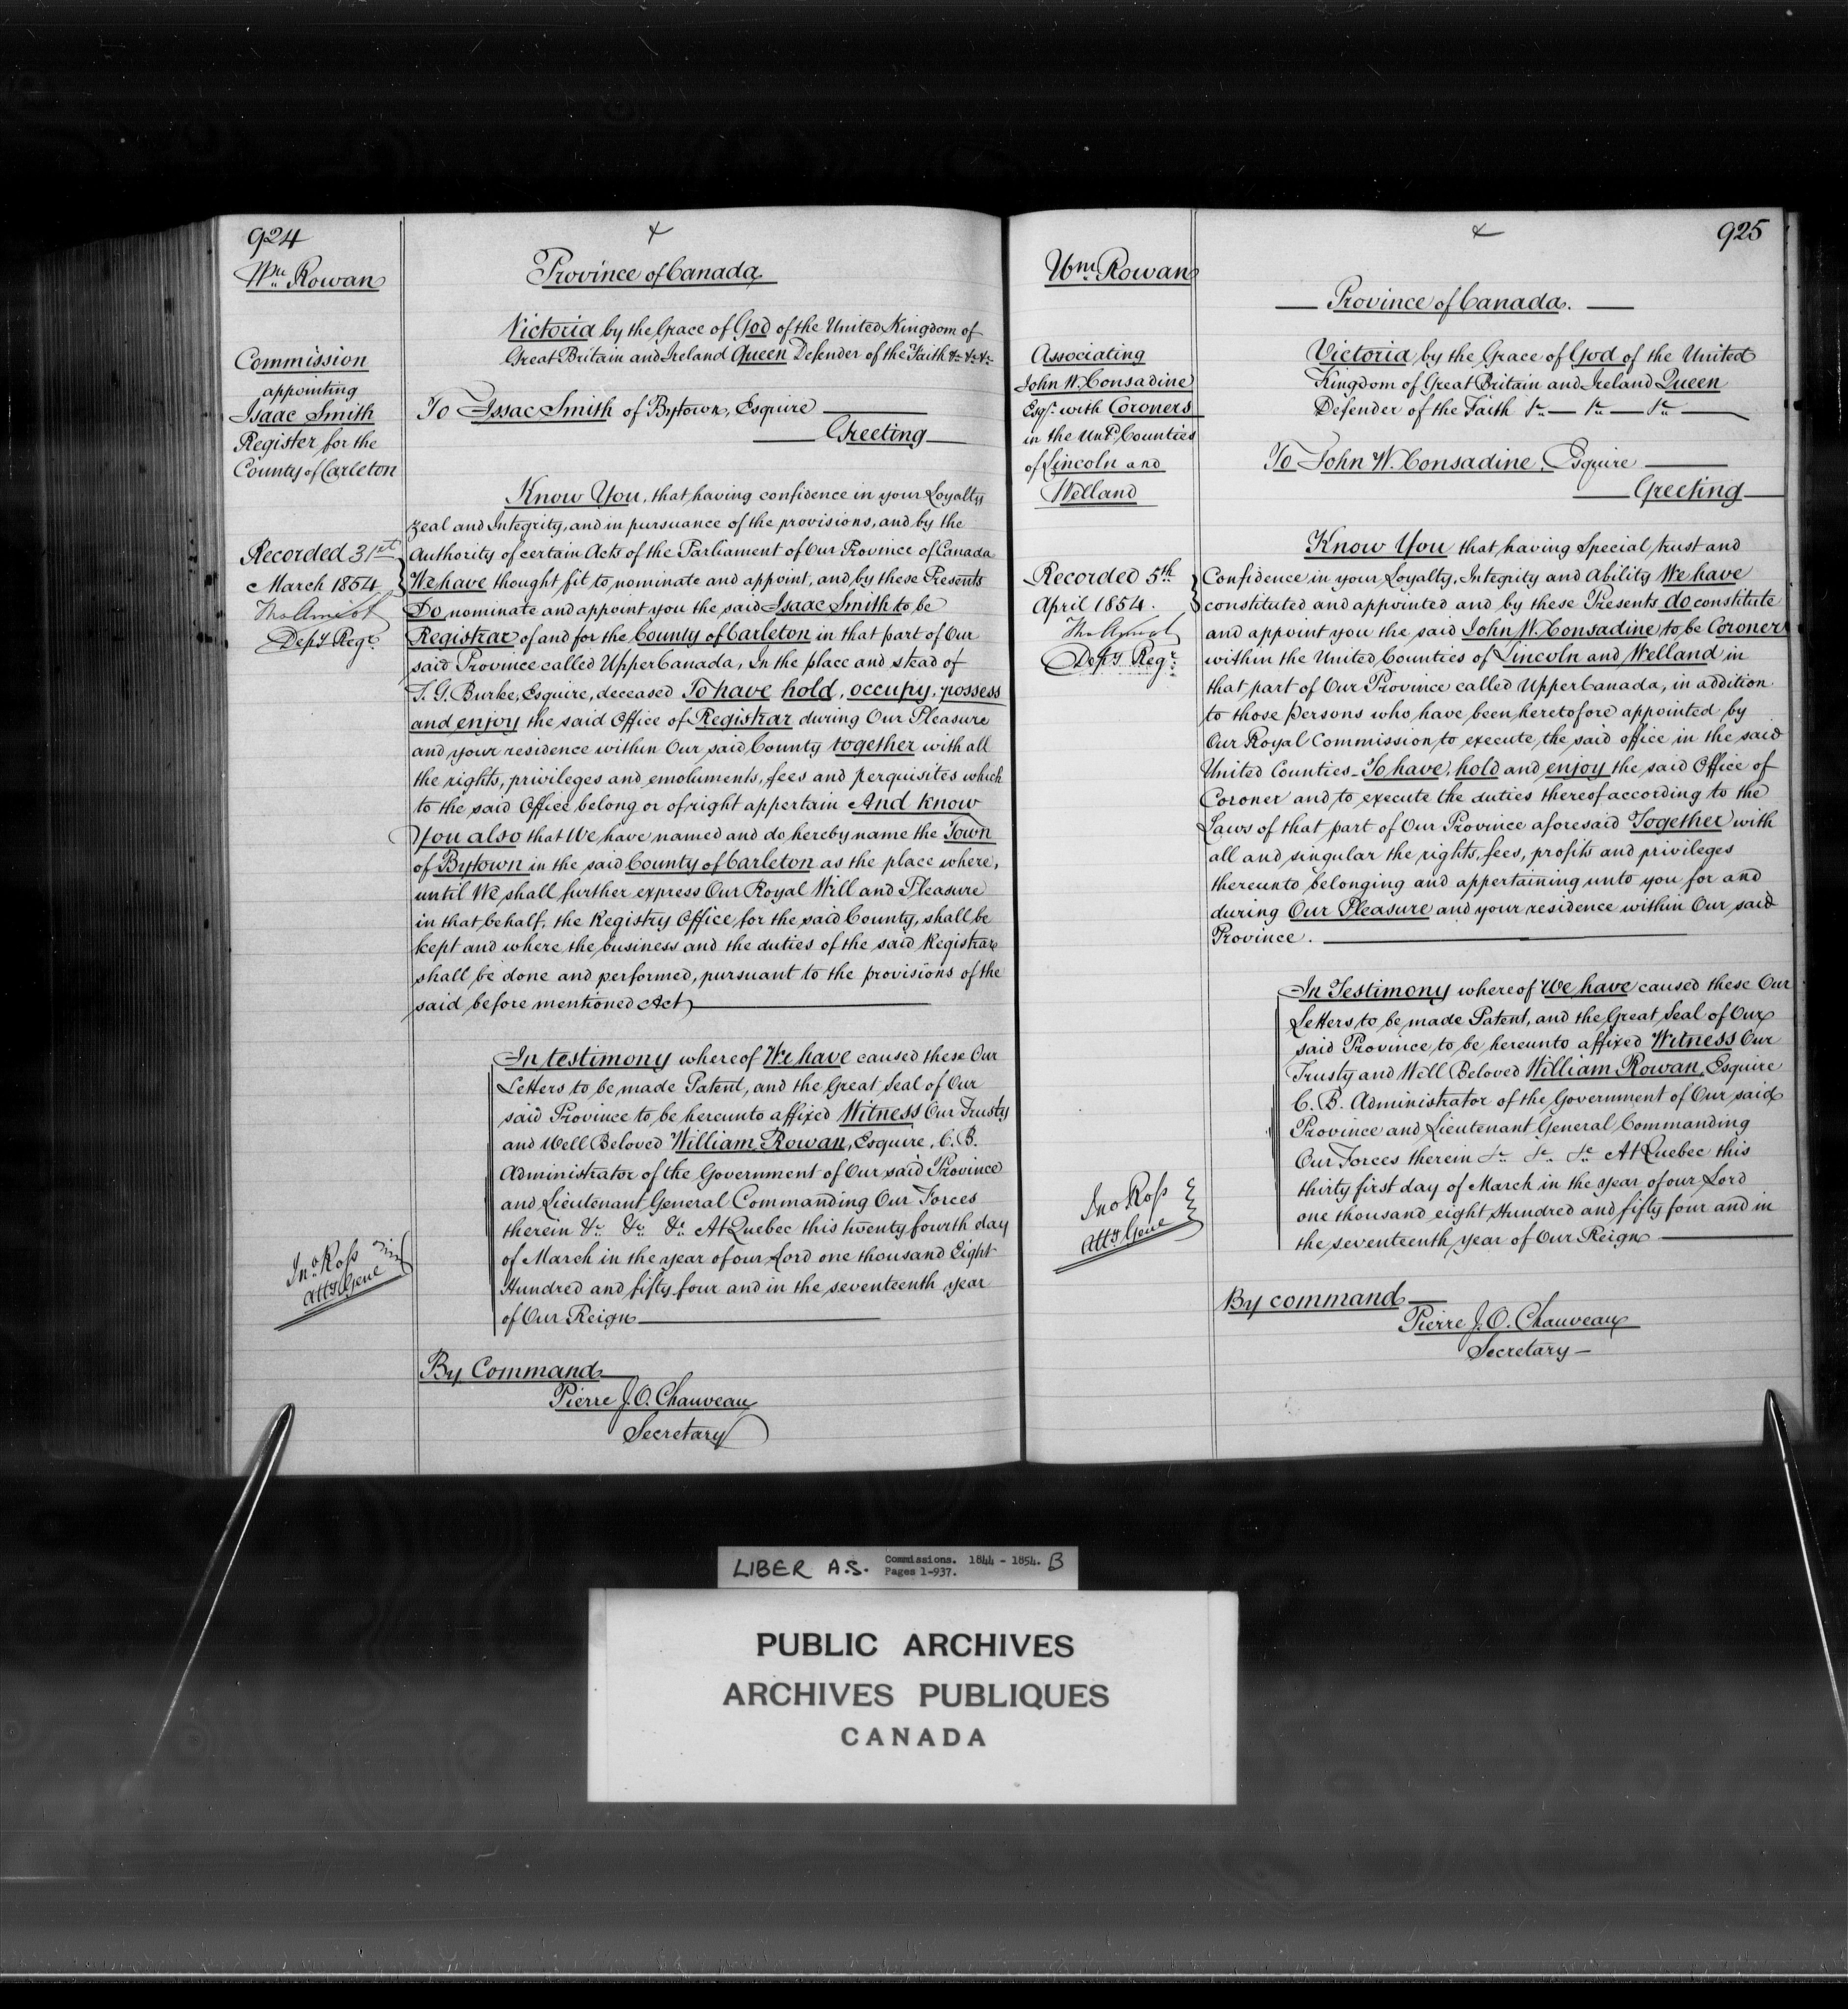 924
Wm Rowan
Commission
appointing
Isaac Smith
Register for the
County of Carleton
Recorded 31st
March 1854
Depy Regr
Jno Ross
Atty Genl
Province of Canada
Victoria by the Grace of God of the United Kingdom of
Great Britain and Ireland Queen Defender of the Faith &c &c &c
To Issac Smith of Bytown, Esquire
Greeting
Know You, that having confidence in your Loyalty,
zeal and Integrity, and in pursuance of the provisions, and by the
Authority of certain Acts of the Parliament of Our Province of Canada
We have thought fit to nominate and appoint, and by these Presents
Do nominate and appoint you the said Isaac Smith to be
Registrar of and for the County of Carleton in that part of Our
said Province called Upper Canada, In the place and stead of
Burke, Esquire, deceased To have hold, occupy, possess
and enjoy the said Office of Registrar during Our Pleasure
and your residence within Our said County together with all
the rights, privileges and emoluments, fees and perquisites which
to the said Office belong or of right appertain And know
You also that We have named and do hereby name the Town
of Bytown in the said County of Carleton as the place where,
until We shall further express Our Royal Will and Pleasure
in that behalf, the Registry Office for the said County, shall be
kept and where the business and the duties of the said Registrar
shall be done and performed, pursuant to the provisions of the
said before mentioned Act
In testimony whereof We have caused these Our
Letters to be made Patent, and the Great Seal of Our
said Province to be hereunto affixed Witness Our Trusty
and Well Beloved William Rowan, Esquire, C.B.
Administrator of the Government of Our said Province
and Lieutenant General Commanding Our Forces
therein &c &c &c At Quebec this twenty fourth day
of March in the year of our Lord one thousand Eight
Hundred and fifty four and in the seventeenth year
of Our Reign
By Command
Pierre J.O. Chauveau
Secretary
925
Wm Rowan
Associating
John W. Consadine
Esqr with Coroners
in the Untd Counties
of Lincoln and
Welland
Recorded 5th
April 1854.
Depy Regr
Jno Ross
Atty Genl
Province of Canada.
Victoria by the Grace of God of the United
Kingdom of Great Britain and Ireland Queen
Defender of the Faith &c &c &c
To John W. Consadine, Esquire
Greeting
Know You that having Special trust and
Confidence in your Loyalty, Integrity and Ability We have
constituted and appointed and by these Presents do constitute
and appoint you the said John W. Consadine to be Coroner
within the United Counties of Lincoln and Welland in
that part of Our Province called Upper Canada, in addition
to those persons who have been heretofore appointed by
Our Royal Commission to execute the said office in the said
United Counties - To have, hold and enjoy the said Office of
Coroner and to execute the duties thereof according to the
Laws of that part of Our Province aforesaid Together with
all and singular the rights, fees, profits and privileges
thereunto belonging and appertaining unto you for and
during Our Pleasure and your residence within Our said
Province.
In Testimony whereof We have caused these Our
Letters to be made Patent, and the Great Seal of Our
said Province to be hereunto affixed Witness Our
Trusty and Well Beloved William Rowan, Esquire
C. B. Administrator of the Government of Our said
Province and Lieutenant General Commanding
Our Forces therein &c &c &c At Quebec this
thirty first day of March in the year of our Lord
one thousand eight Hundred and fifty four and in
the seventeenth year of Our Reign
By command
Pierre J.O. Chauveau
Secretary
LIBER A.S. Commissions. 1844 - 1854. B
Pages 1-937.
PUBLIC ARCHIVES
ARCHIVES PUBLIQUES
CANADA